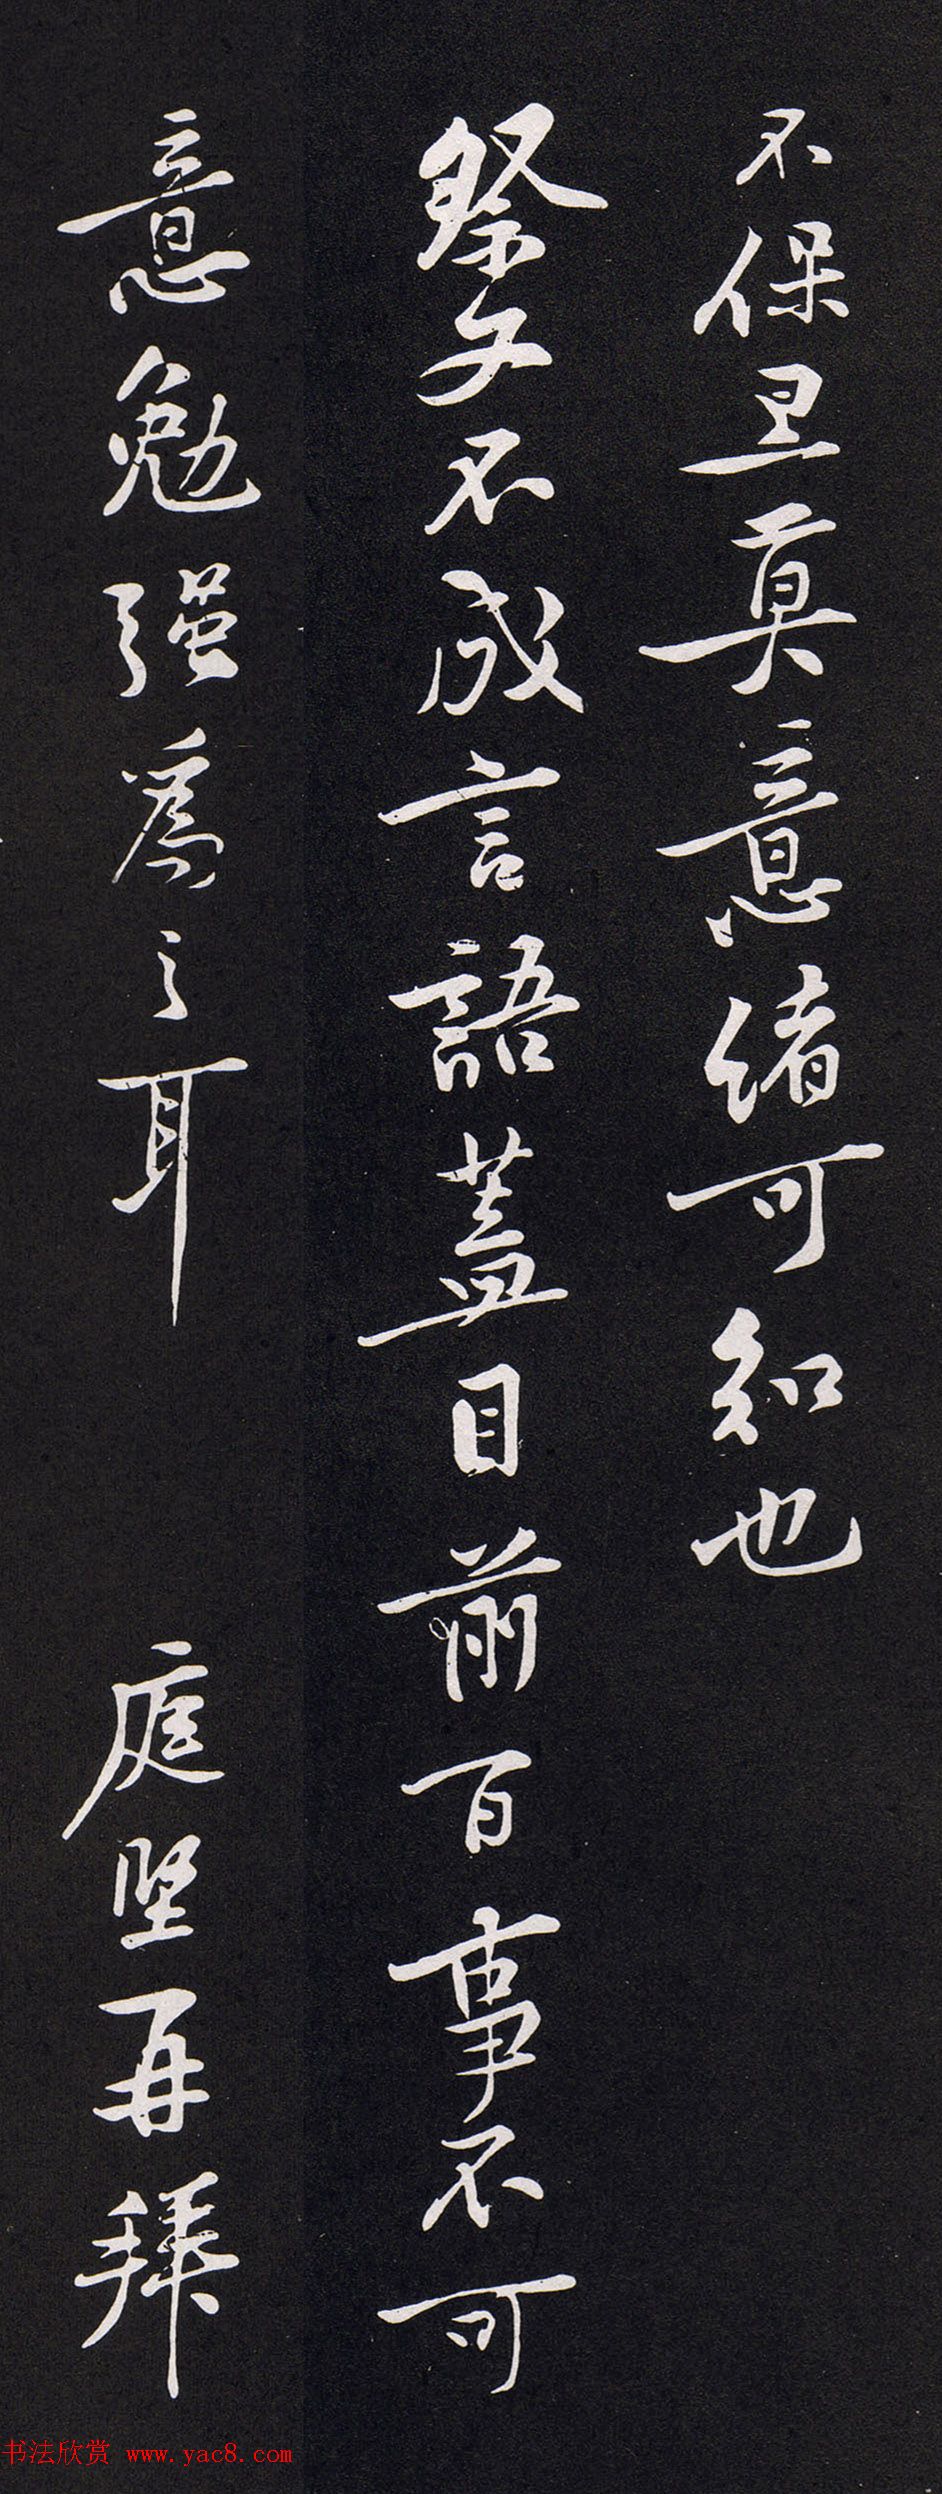 不保旦莫意緒可知也
祭文不成言語蓋目前百事不可
意勉强為之耳 庭堅再拜
书法欣赏 www.yac8.com